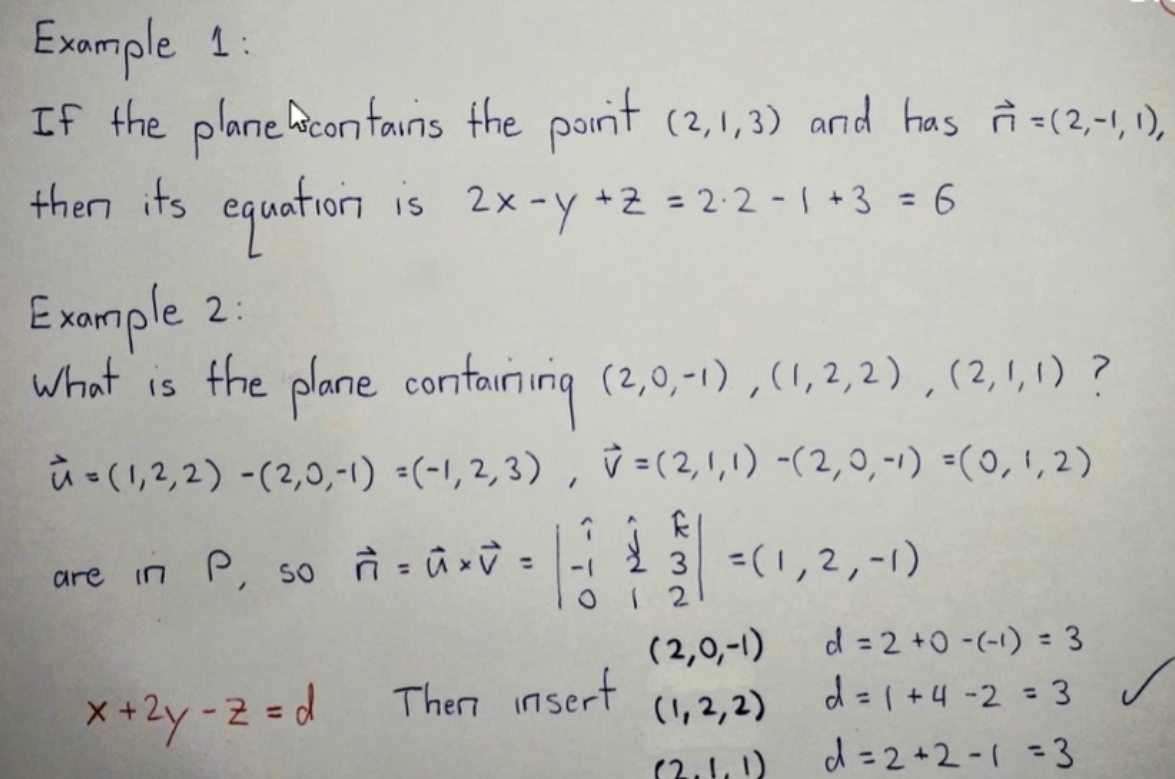 Example 1:
If the plane contains the point (2,1,3) and has n⃗ =(2,-1,1),
then its equation is 2x - y + z = 2·2 - 1 + 3 = 6
Example 2:
What is the plane containing (2,0,-1), (1,2,2), (2,1,1) ?
u⃗ = (1,2,2) - (2,0,-1) = (-1,2,3), v⃗ = (2,1,1) - (2,0,-1) = (0,1,2)
are in P, so n⃗ = u⃗ × v⃗ = | î ĵ k̂ ; -1 2 3 ; 0 1 2 | = (1, 2, -1)
(2,0,-1) d = 2 + 0 - (-1) = 3
x + 2y - z = d Then insert (1,2,2) d = 1 + 4 - 2 = 3 ✓
(2,1,1) d = 2 + 2 - 1 = 3